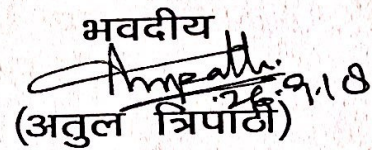 भवदीय
26.9.18
(अतुल त्रिपाठी)